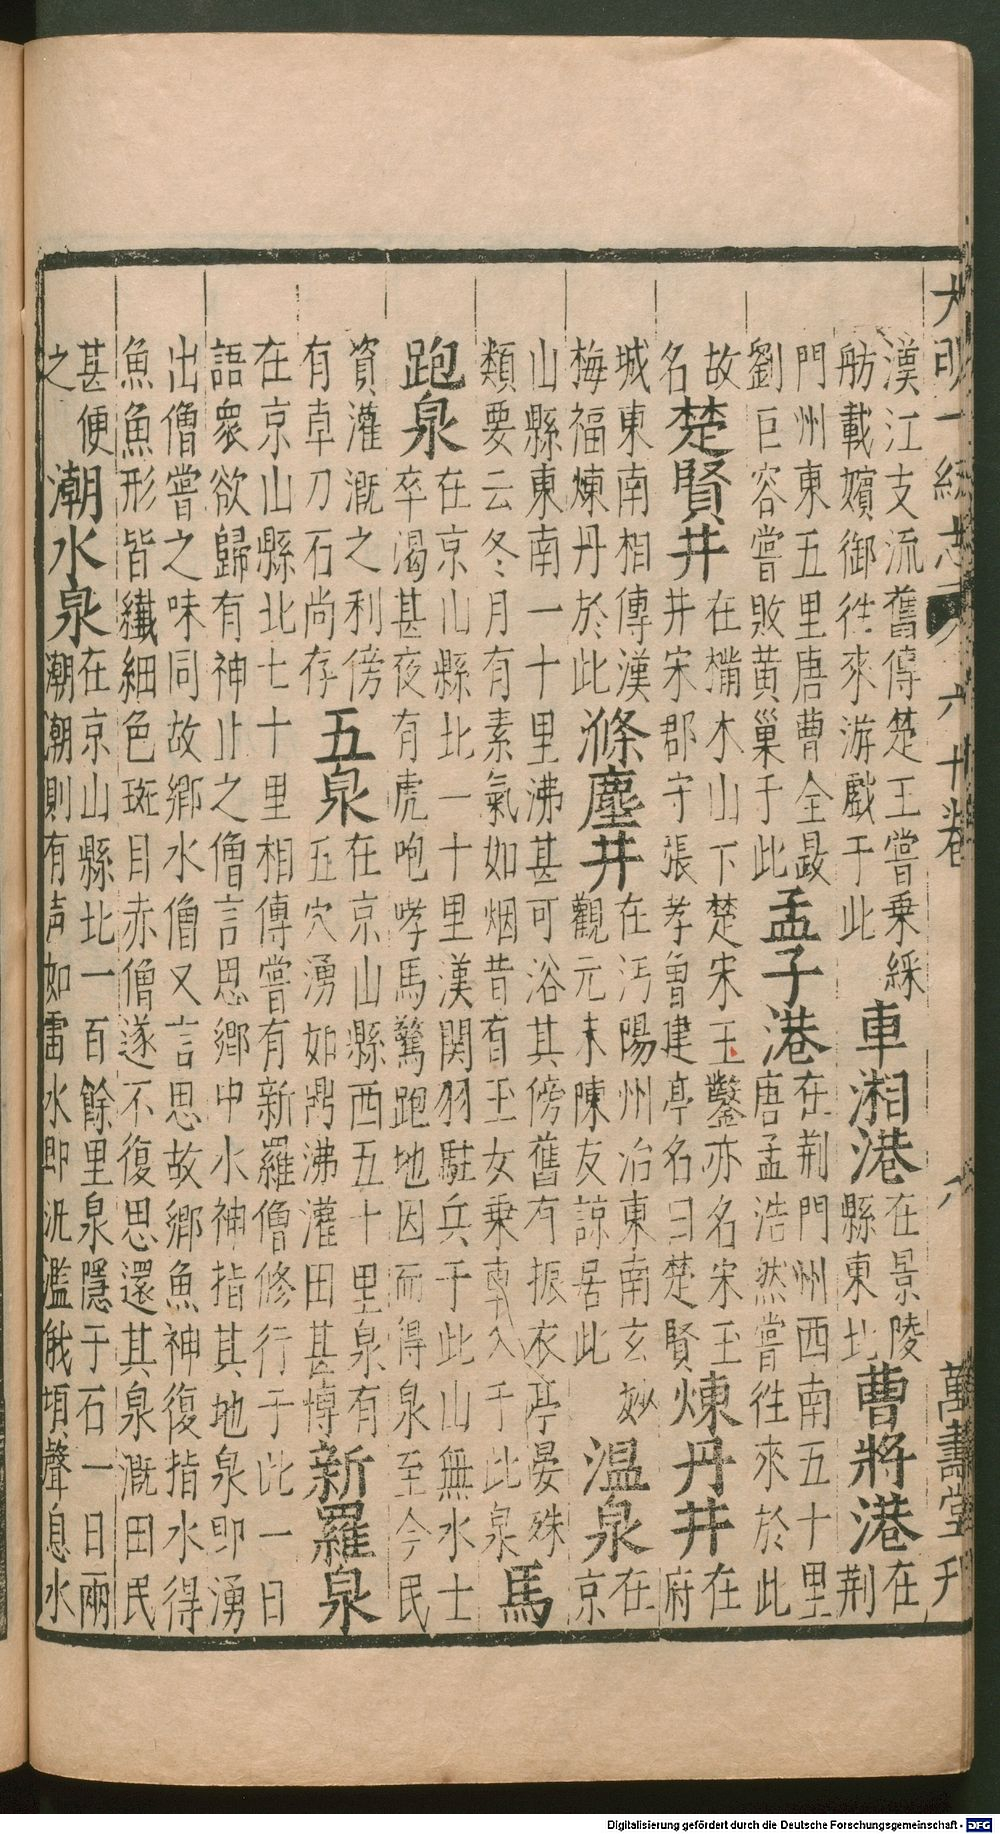 大明一統志 六十卷 八 萬壽堂刊
漢江支流舊傳楚王嘗乗綵
舫載嬪御徃來游戲于此
車湘港
在景陵
縣東北
曹將港
在
荆
門州東五里唐曹全晸
劉巨容嘗敗黄巢于此
孟子港
在荆門州西南五十里
唐孟浩然嘗徃來於此
故
名
楚賢井
在㰏木山下楚宋玉鑿亦名宋玉
井宋郡守張孝曾建亭名曰楚賢
煉丹井
在
府
城東南相傳漢
梅福煉丹於此
滌塵井
在沔陽州治東南玄妙
觀元末陳友諒居此
温泉
在
京
山縣東南一十里沸甚可浴其傍舊有振衣亭晏殊
類要云冬月有素氣如烟昔有玉女乗車入于此泉
馬
跑泉
在京山縣北一十里漢関羽駐兵于此山無水士
卒渴甚夜有虎咆哮馬驚跑地因而得泉至今民
資灌溉之利傍
有卓刀石尚存
五泉
在京山縣西五十里泉有
五穴湧如鼎沸灌田甚博
新羅泉
在京山縣北七十里相傳嘗有新羅僧修行于此一日
語衆欲歸有神止之僧言思鄉中水神指其地泉即湧
出僧嘗之味同故鄉水僧又言思故鄉魚神復指水得
魚魚形皆纎細色斑目赤僧遂不復思還其泉溉田民
甚便
之
潮水泉
在京山縣北一百餘里泉隱于石一日兩
潮潮則有声如雷水即汎濫俄頃聲息水
Digitalisierung gefördert durch die Deutsche Forschungsgemeinschaft - DFG